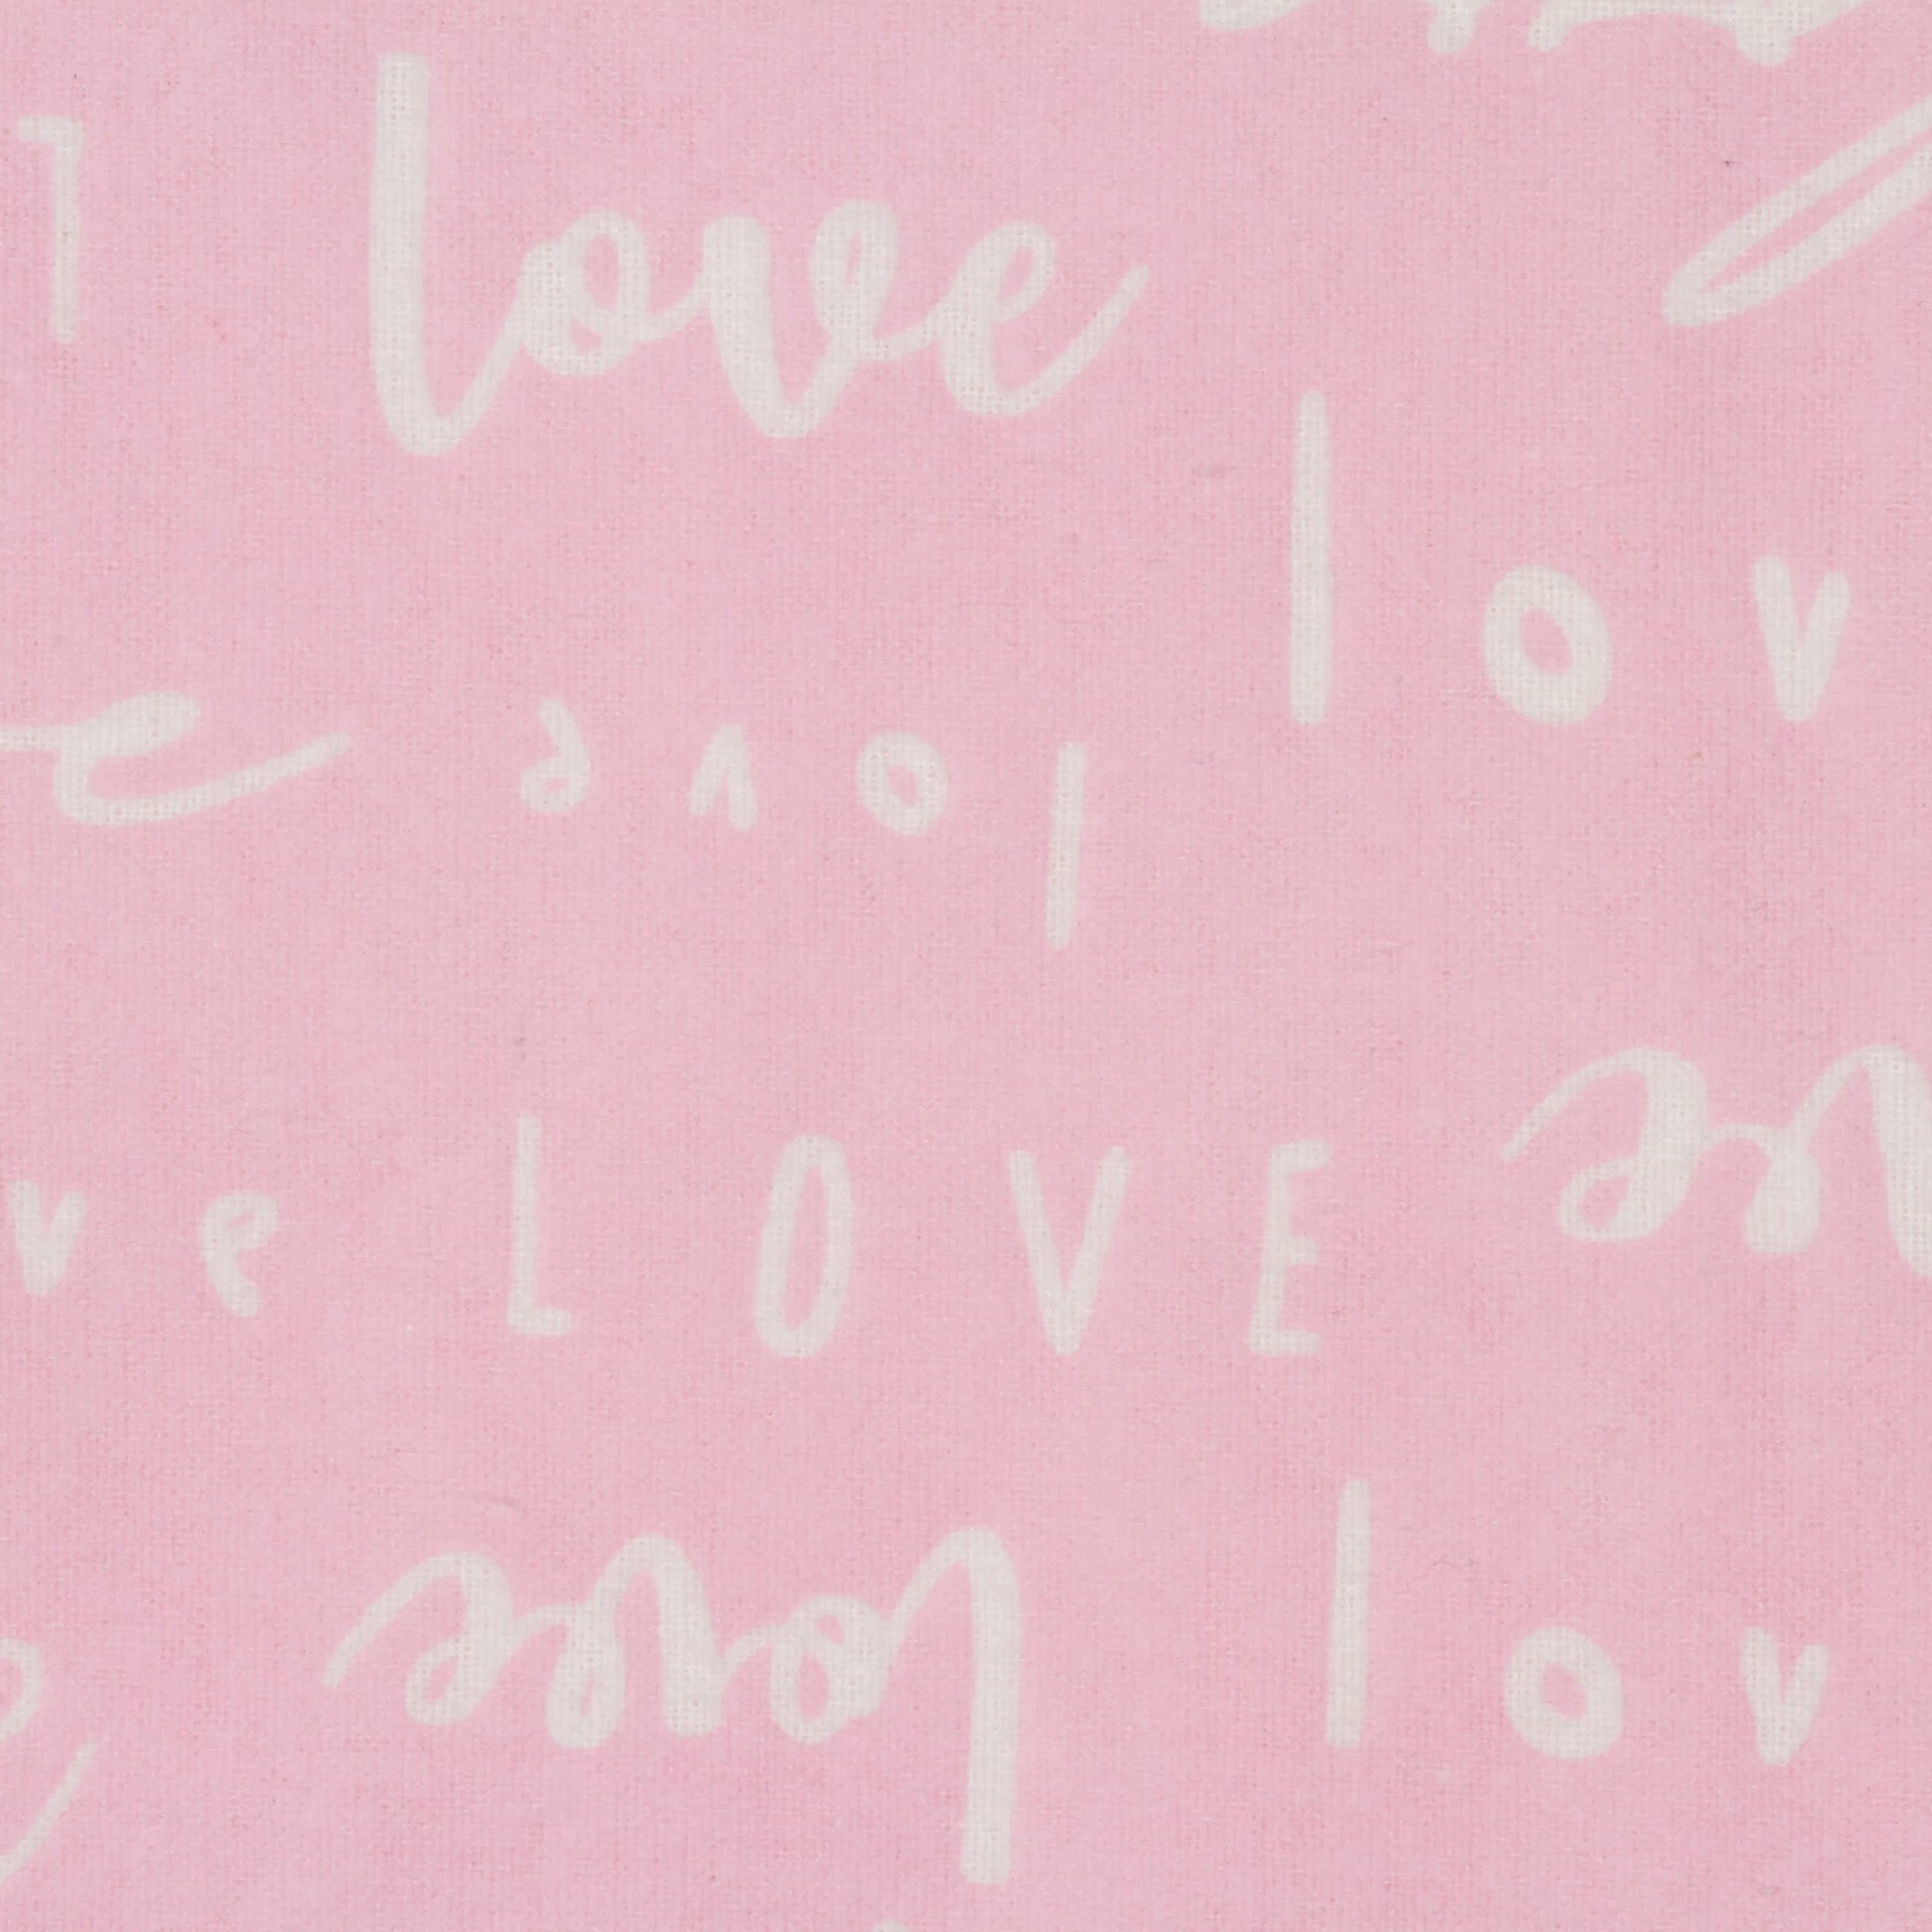 love
lov
e love
ve LOVE
love lov